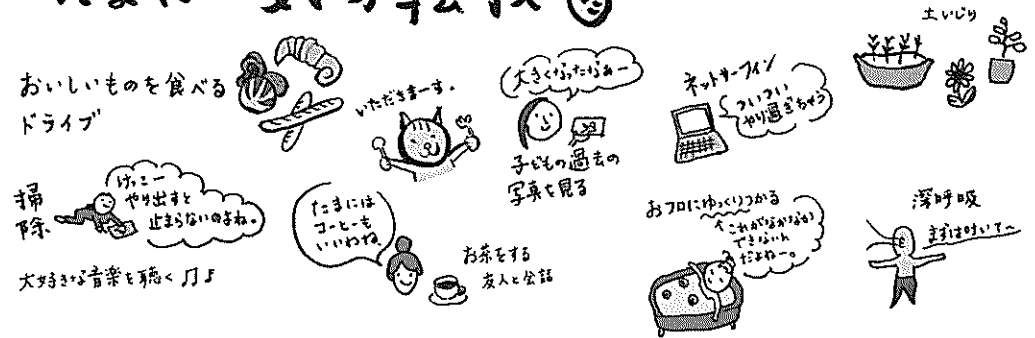 気分転換
土いじり
おいしいものを食べる
ドライブ
いただきまーす。
大きくなったなあー
子どもの過去の
写真を見る
ネットサーフィン
ついつい
やり過ぎちゃう
掃
除、
けっこー
やり出すと
止まらないのよね。
大好きな音楽を聴く♫♪
たまには
コーヒーも
いいわね
お茶をする
友人と会話
おフロにゆっくりつかる
これがなかなか
できないん
だよねー。
深呼吸
まずは吐いて〜